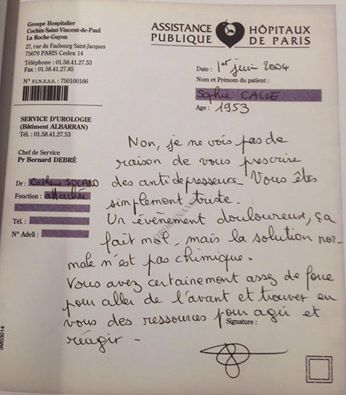 Groupe Hospitalier
Cochin-Saint-Vincent-de-Paul
La Roche-Guyon
27, rue du Faubourg Saint-Jacques
75679 PARIS Cedex 14
Téléphone : 01.58.41.27.53
Fax : 01.58.41.27.85
N° F.I.N.E.S.S. : 750100166
SERVICE D'UROLOGIE
(Bâtiment ALBARRAN)
Tél. : 01.58.41.27.53
Chef de Service
Pr Bernard DEBRÉ
Dr :
Fonction : attachée
Tél. :
N° Adeli :
ASSISTANCE HÔPITAUX
PUBLIQUE DE PARIS
Date : 1er juin 2004
Nom et Prénom du patient :
Sophie CALLE
Age : 1953
Non, je ne vois pas de
raison de vous prescrire
des antidépresseurs. Vous êtes
simplement triste.
Un événement douloureux, ça
fait mal, mais la solution nor-
male n'est pas chimique.
Vous avez certainement assez de force
pour aller de l'avant et trouver en
vous des ressources pour agir et
réagir.
Signature :